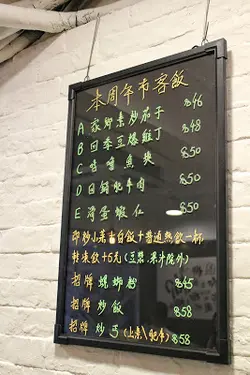 本周午市客飯
A 家鄉素炒茄子 $46
B 四季豆爆雞丁 $48
C 咕嚕魚塊 $50
D 牛肉 $50
E 滑蛋蝦仁 $50
即炒小菜富白飯+普通熱飲一杯
轉凍飲+5元(豆漿.果汁除外)
招牌 螺螄粉 $45
招牌 炒飯 $58
招牌 炒丐 $58